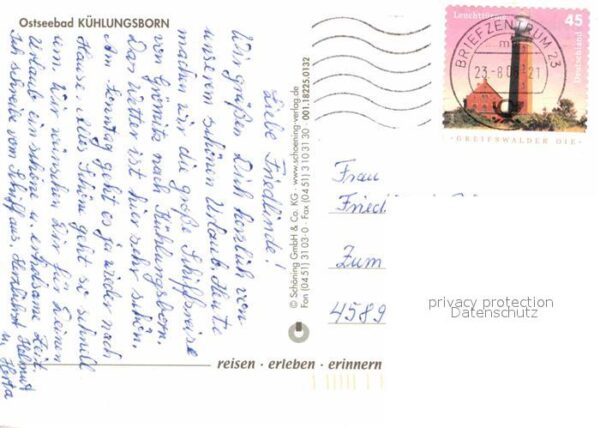 Ostseebad KÜHLUNGSBORN
Liebe Friedlinde!
Wir grüßen Dich herzlich von
unserem schönen Urlaub. Heute
machen wir die große Schiffsreise
von Grömitz nach Kühlungsborn.
Das Wetter ist hier sehr schön.
Am Sonntag geht es ja wieder nach
Hause. Alles Schöne geht so schnell
um. Wir wünschen Dir für Deinen
Urlaub eine schöne u. erholsame Zeit.
Ich schreibe vom Schiff aus. Herzlichst Helmut
u. Herta
© Schöning GmbH & Co. KG · www.schoening-verlag.de
Fon (04 51) 31 03-0 · Fax (04 51) 3 10 31 30 001.18225.0132
Leuchttürme
45
Deutschland
GREIFSWALDER OIE
BRIEFZENTRUM 23
23-8.05-21
Frau
Fried
Zum
4589
privacy protection
Datenschutz
reisen · erleben · erinnern